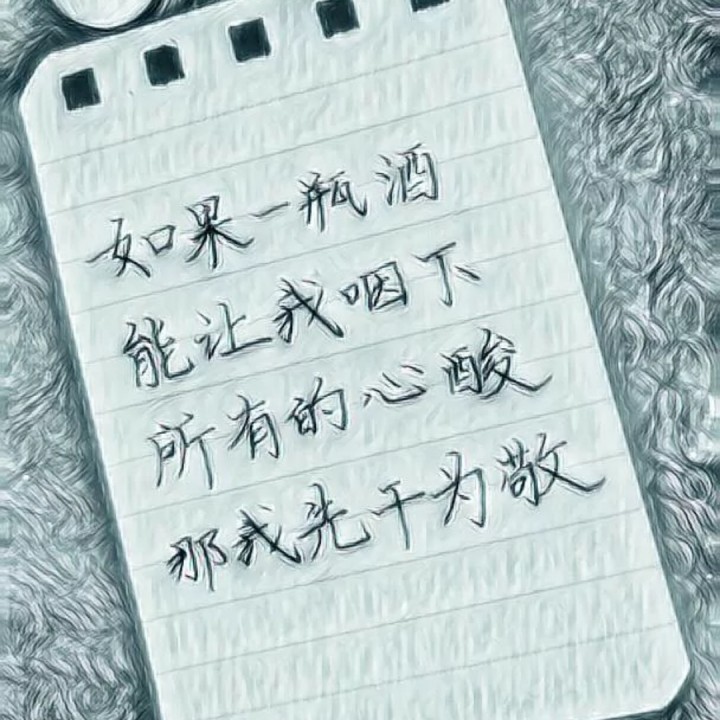 如果一瓶酒
能让我咽下
所有的心酸
那我先干为敬